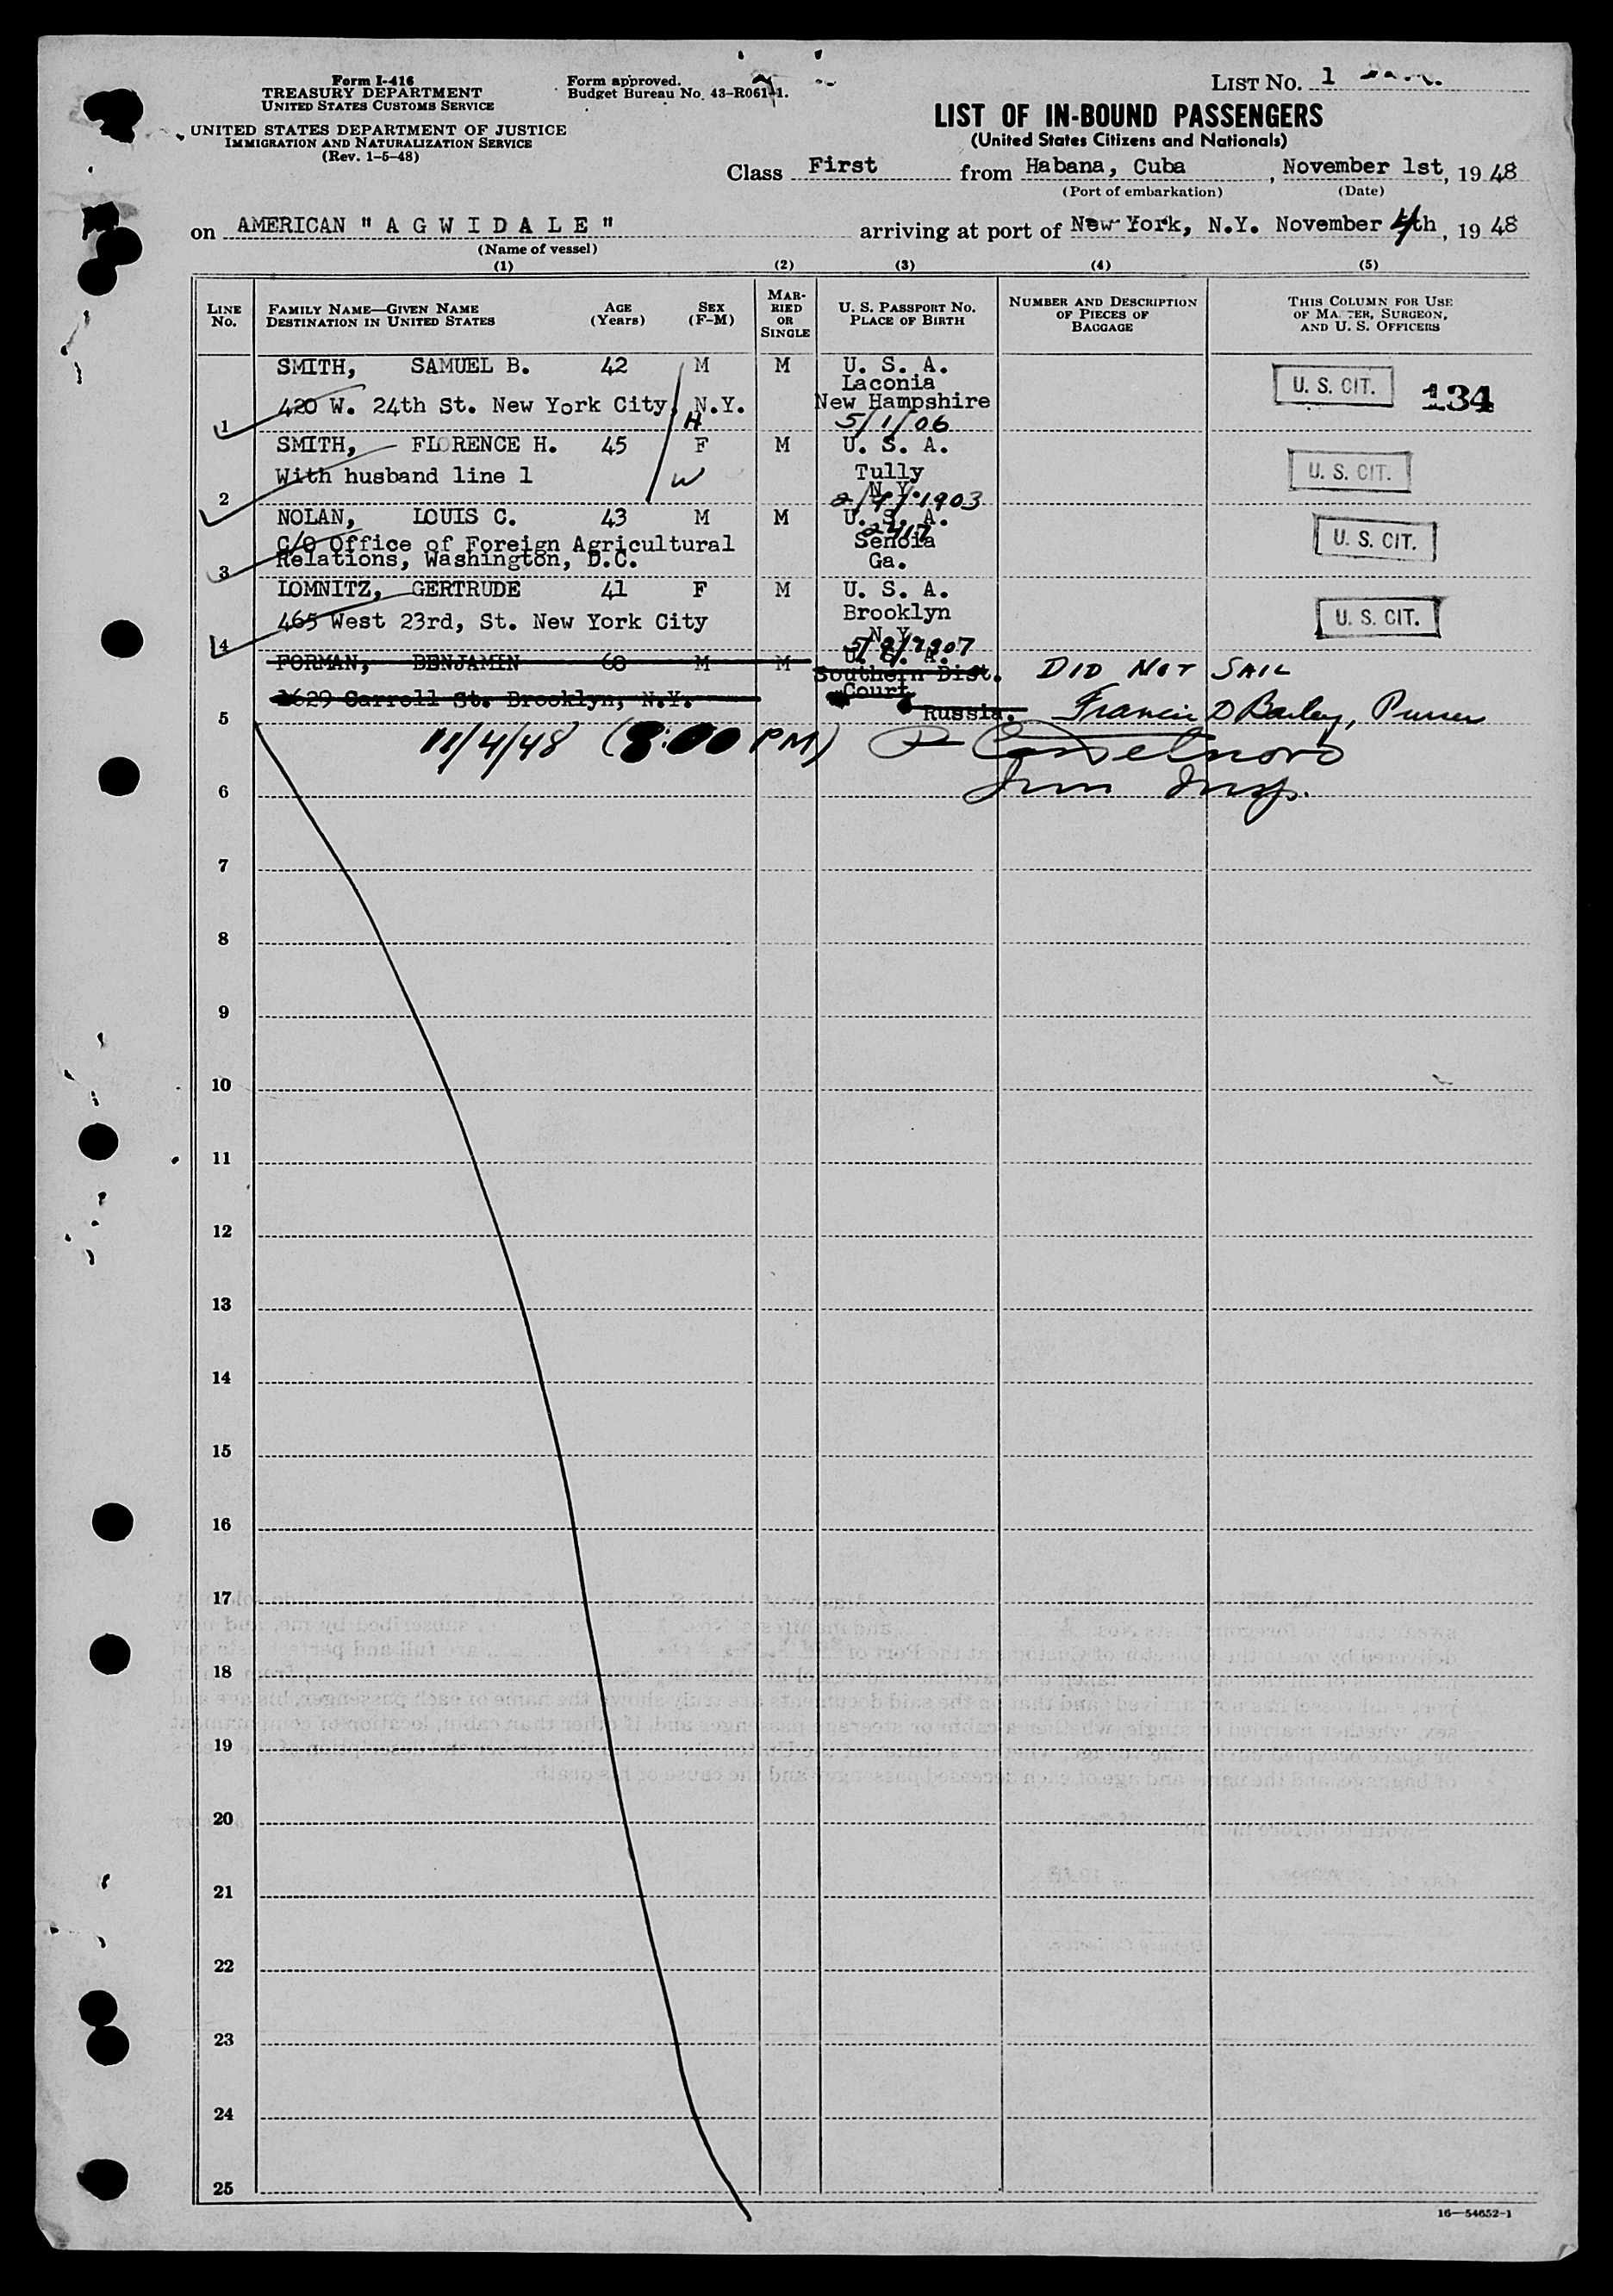 Form I-416
TREASURY DEPARTMENT
UNITED STATES CUSTOMS SERVICE
UNITED STATES DEPARTMENT OF JUSTICE
IMMIGRATION AND NATURALIZATION SERVICE
(Rev. 1-5-48)
Form approved.
Budget Bureau No. 43-R061-1.
LIST NO. 1
LIST OF IN-BOUND PASSENGERS
(United States Citizens and Nationals)
Class First from Habana, Cuba, November 1st, 19 48
(Port of embarkation) (Date)
on AMERICAN " A G W I D A L E " arriving at port of New York, N.Y. November 4th, 19 48
(Name of vessel)
(1) (2) (3) (4) (5)
LINE NO.
FAMILY NAME—GIVEN NAME
DESTINATION IN UNITED STATES
AGE (Years)
SEX (F-M)
MARRIED OR SINGLE
U. S. PASSPORT NO.
PLACE OF BIRTH
NUMBER AND DESCRIPTION OF PIECES OF BAGGAGE
THIS COLUMN FOR USE OF MASTER, SURGEON, AND U. S. OFFICERS
SMITH, SAMUEL B. 42 M M U. S. A.
Laconia
U. S. CIT. 134
420 W. 24th St. New York City, N.Y. New Hampshire
1 H 5/1/06
SMITH, FLORENCE H. 45 F M U. S. A.
With husband line 1 W Tully U. S. CIT.
N.Y.
2 1903
NOLAN, LOUIS C. 43 M M U. S. A.
C/O Office of Foreign Agricultural Senoia U. S. CIT.
3 Relations, Washington, D.C. Ga.
LOMNITZ, GERTRUDE 41 F M U. S. A.
465 West 23rd, St. New York City Brooklyn U. S. CIT.
N.Y.
4 1907
FORMAN, BENJAMIN 60 M M U. S. A.
Southern Dist. DID NOT SAIL
1629 Carroll St. Brooklyn, N.Y. Court
5 Russia. Francis D Bailey, Purser
11/4/48 (8:00 PM)
6 Imm Insp.
7
8
9
10
11
12
13
14
15
16
17
18
19
20
21
22
23
24
25
16—54652-1